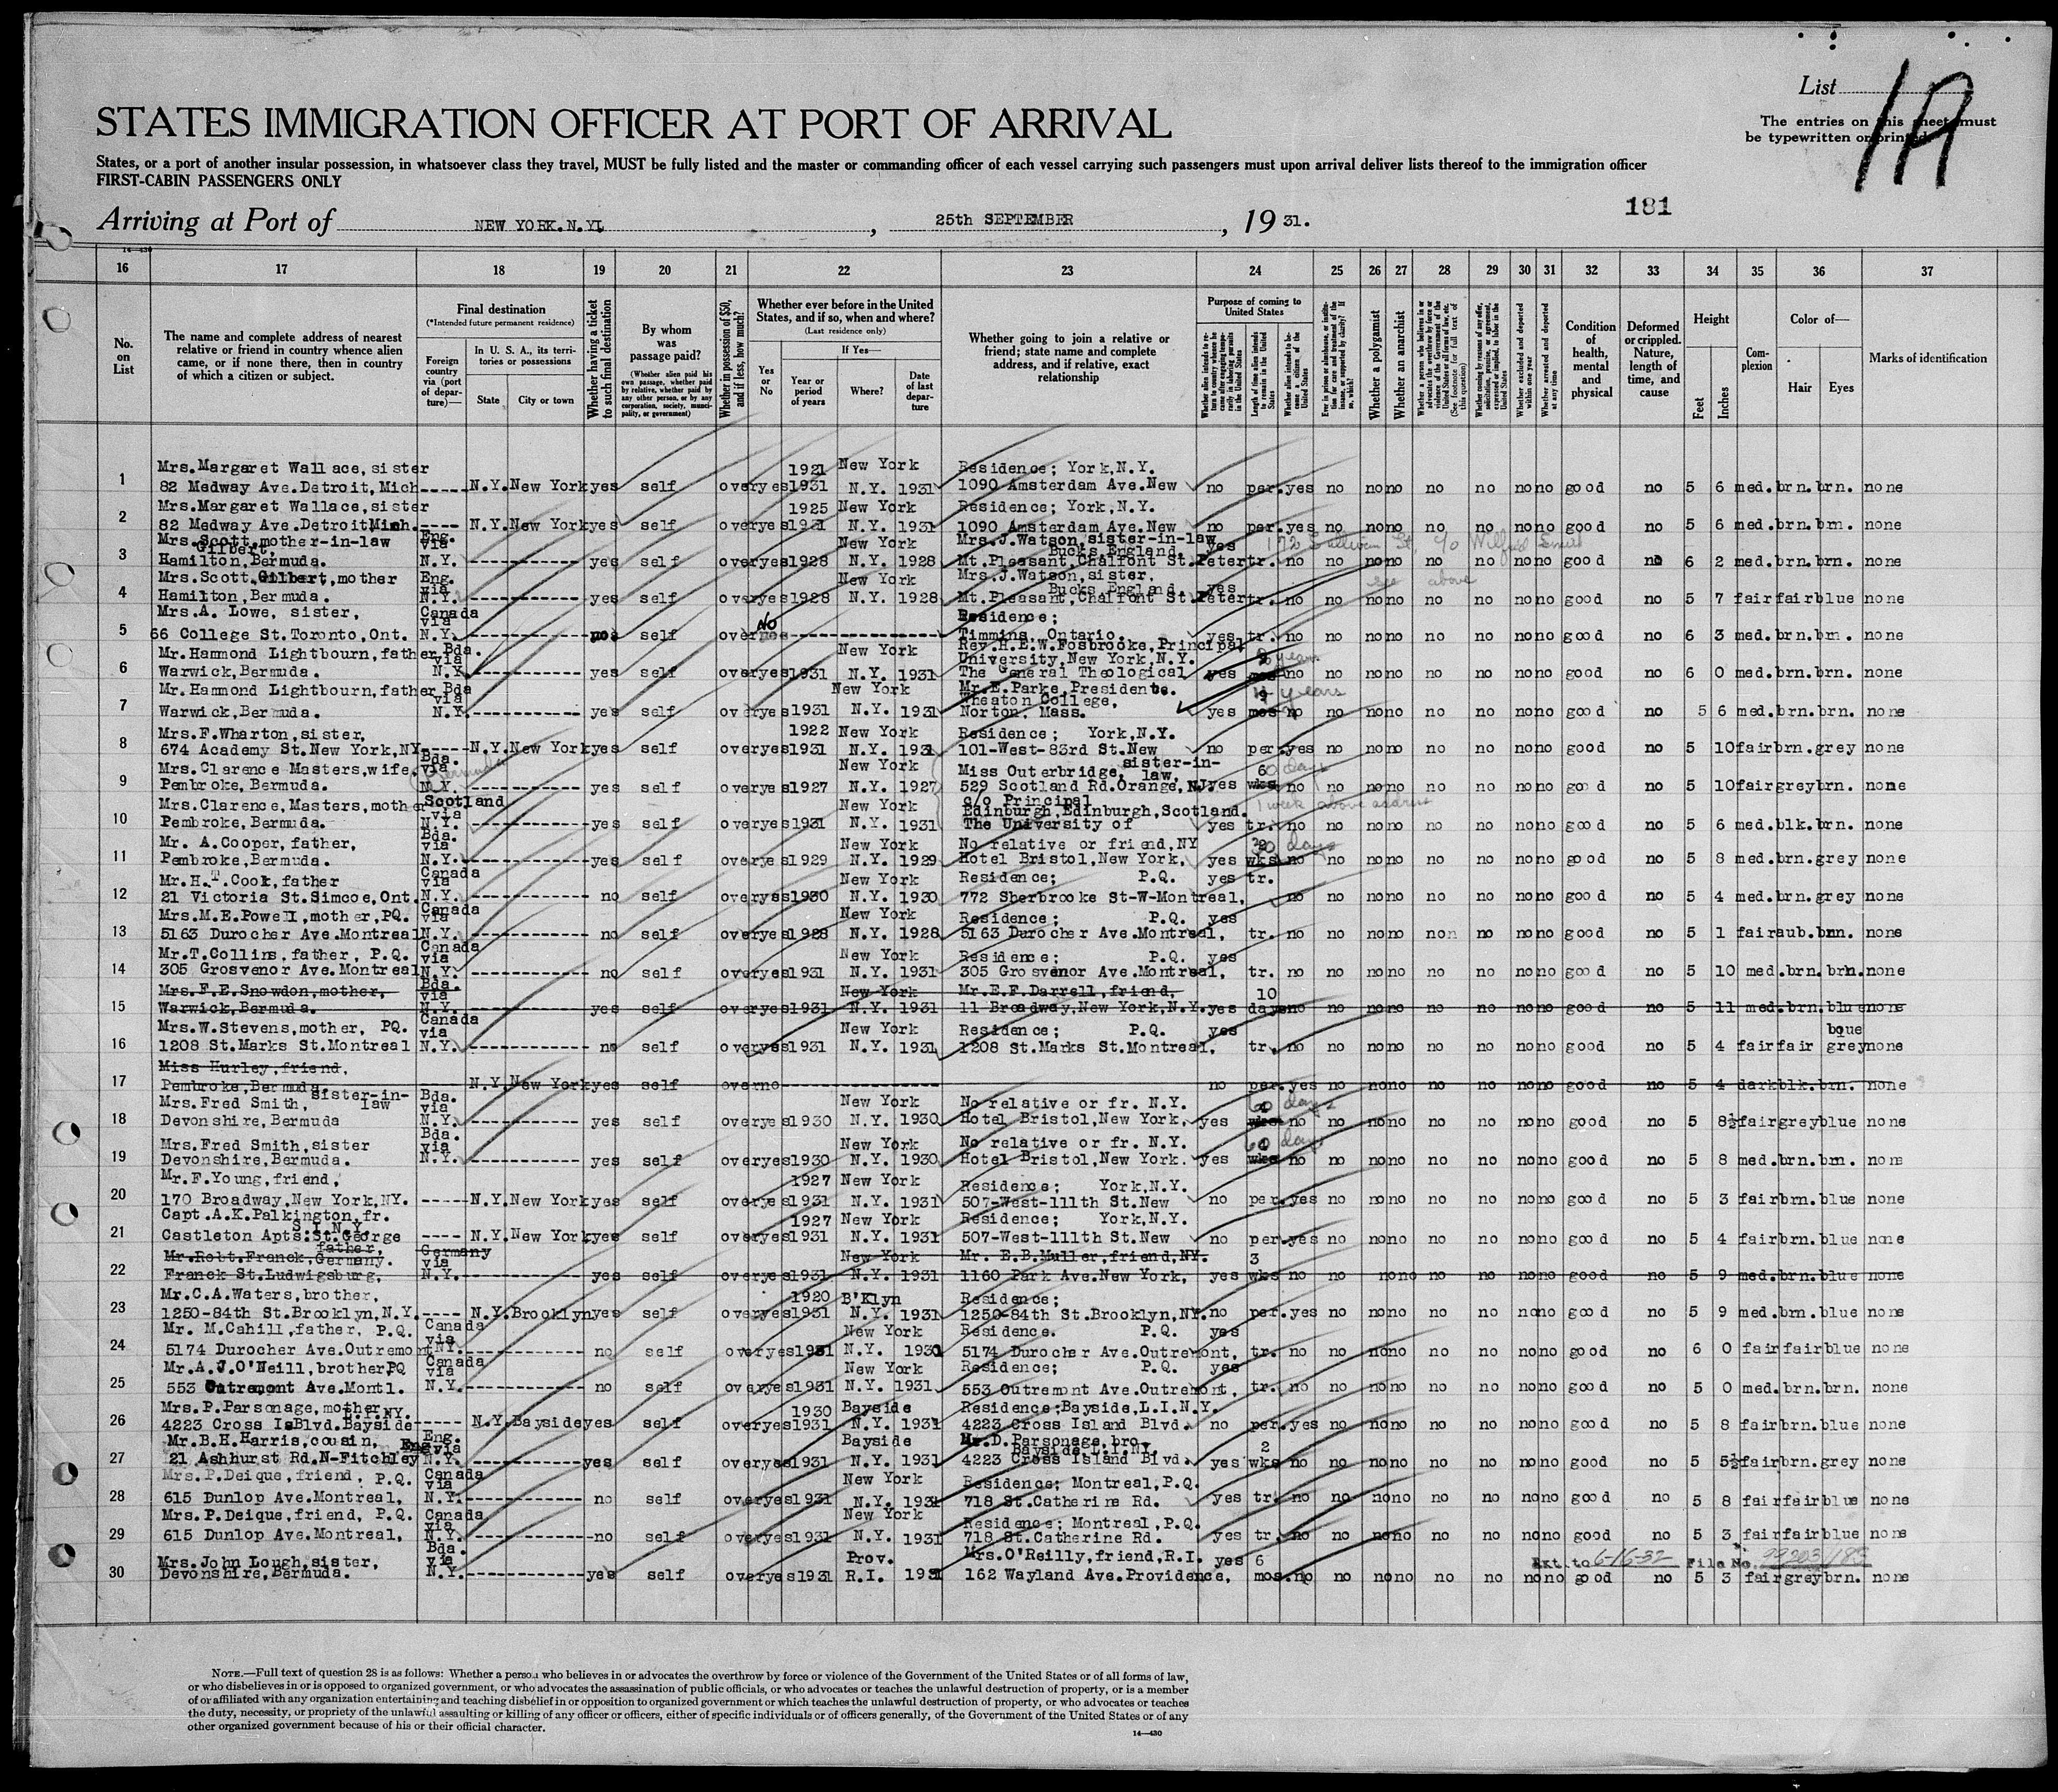 List 1A
The entries on this sheet must
be typewritten or printed
STATES IMMIGRATION OFFICER AT PORT OF ARRIVAL
States, or a port of another insular possession, in whatsoever class they travel, MUST be fully listed and the master or commanding officer of each vessel carrying such passengers must upon arrival deliver lists thereof to the immigration officer
FIRST-CABIN PASSENGERS ONLY
181
Arriving at Port of NEW YORK.N.Y. , 25th SEPTEMBER , 19 31.
14-430
16 17 18 19 20 21 22 23 24 25 26 27 28 29 30 31 32 33 34 35 36 37
No. on List
The name and complete address of nearest
relative or friend in country whence alien
came, or if none there, then in country
of which a citizen or subject.
Final destination
(*Intended future permanent residence)
Foreign country via (port of departure)—
In U. S. A., its territories or possessions
State City or town
Whether having a ticket to such final destination
By whom was passage paid?
(Whether alien paid his own passage, whether paid by relative, whether paid by any other person, or by any corporation, society, municipality, or government)
Whether in possession of $50, and if less, how much?
Whether ever before in the United States, and if so, when and where?
(Last residence only)
Yes or No
If Yes—
Year or period of years
Where?
Date of last departure
Whether going to join a relative or
friend; state name and complete
address, and if relative, exact
relationship
Purpose of coming to United States
Whether alien intends to return to country whence he came after engaging temporarily in laboring pursuits in the United States
Length of time alien intends to remain in the United States
Whether alien intends to become a citizen of the United States
Ever in prison or almshouse, or institution for care and treatment of the insane, or supported by charity? If so, which?
Whether a polygamist
Whether an anarchist
Whether a person who believes in or advocates the overthrow by force or violence of the Government of the United States or all forms of law, etc. (See footnote for full text of this question)
Whether coming by reasons of any offer, solicitation, promise, or agreement, expressed or implied, to labor in the United States
Whether excluded and deported within one year
Whether arrested and deported at any time
Condition of health, mental and physical
Deformed or crippled. Nature, length of time, and cause
Height
Feet Inches
Complexion
Color of—
Hair Eyes
Marks of identification
Mrs.Margaret Wallace,sister 1921 New York Residence; York,N.Y.
1 82 Medway Ave.Detroit,Mich----- N.Y. New York yes self over yes 1931 N.Y. 1931 1090 Amsterdam Ave.New no per. yes no no no no no no no good no 5 6 med. brn. brn. none
Mrs.Margaret Wallace,sister 1925 New York Residence; York,N.Y.
2 82 Medway Ave.Detroit Mich. ---- N.Y. New York yes self over yes 1931 N.Y. 1931 1090 Amsterdam Ave.New no per. yes no no no no no no no good no 5 6 med. brn. brn. none
Mrs.Scott,mother-in-law Eng. via New York Mrs.J.Watson,sister-in-law yes 172 Sullivan St, c/o Wilfrid Smith
Gilbert, Bucks,England,
3 Hamilton,Bermuda. N.Y. ---------- yes self over yes 1928 N.Y. 1928 Mt.Pleasant,Chalfont St.Peter tr. no no no no no no no no good no 6 2 med. brn. brn. none
Mrs.Scott,Gilbert,mother Eng. via New York Mrs.J.Watson,sister, yes see above
Bucks England,
4 Hamilton,Bermuda. N.Y. ---------- yes self over yes 1928 N.Y. 1928 Mt.Pleasant,Chalfont St.Peter tr. no no no no no no no no good no 5 7 fair fair blue none
Mrs.A. Lowe, sister, Canada via No Residence;
5 66 College St.Toronto,Ont. N.Y. ---------- no self over ---------- Timmins, Ontario. yes tr. no no no no no no no no good no 6 3 med. brn. brn. none
Mr.Hammond Lightbourn,father Bda. via New York Rev.H.E.W.Fosbrooke,Principal
University,New York,N.Y. years
6 Warwick,Bermuda. N.Y. ---------- yes self over yes 1931 N.Y. 1931 The General Theological yes mos no no no no no no no no good no 6 0 med. brn. brn. none
Mr.Hammond Lightbourn,father Bda via New York Mr.E.Parke,President. years
Wheaton College,
7 Warwick,Bermuda. N.Y. ---------- yes self over yes 1931 N.Y. 1931 Norton, Mass. yes mos no no no no no no no no good no 5 6 med. brn. brn. none
Mrs.F.Wharton,sister, 1922 New York Residence; York,N.Y.
8 674 Academy St.New York,NY----- N.Y. New York yes self over yes 1931 N.Y. 1931 101-West-83rd St.New no per. yes no no no no no no no good no 5 10 fair brn. grey none
Mrs.Clarence Masters,wife, Bda. via Bermuda New York Miss Outerbridge, sister-in-law, 60 days
9 Pembroke,Bermuda. N.Y. ---------- yes self over yes 1927 N.Y. 1927 529 Scotland Rd.Orange,NJ. yes wks no no no no no no no no good no 5 10 fair grey brn. none
Mrs.Clarence,Masters,mother Scotland via New York c/o Principal 1 week above address
Edinburgh,Edinburgh,Scotland.
10 Pembroke,Bermuda. N.Y. ---------- yes self over yes 1931 N.Y. 1931 The University of yes tr. no no no no no no no no good no 5 6 med. blk. brn. none
Mr. A.Cooper,father, Bda. via New York No relative or friend,NY 30 days
11 Pembroke,Bermuda. N.Y. ---------- yes self over yes 1929 N.Y. 1929 Hotel Bristol,New York, yes wks no no no no no no no no good no 5 8 med. brn. grey none
Mr.H.T.Cook,father Canada via New York Residence; P.Q. yes tr.
12 21 Victoria St.Simcoe,Ont. N.Y. ---------- no self over yes 1930 N.Y. 1930 772 Sherbrooke St-W-Montreal, no no no no no no no no good no 5 4 med. brn. grey none
Mrs.M.E.Powell,mother,PQ. Canada via New York Residence; P.Q. yes
13 5163 Durocher Ave.Montreal N.Y. ---------- no self over yes 1928 N.Y. 1928 5163 Durocher Ave.Montreal, tr. no no no no non no no no good no 5 1 fair aub. brn. none
Mr.T.Collins,father, P.Q. Canada via New York Residence; P.Q. yes
14 305 Grosvenor Ave.Montreal N.Y. ---------- no self over yes 1931 N.Y. 1931 305 Grosvenor Ave.Montreal, tr. no no no no no no no no good no 5 10 med. brn. brn. none
Mrs.F.E.Snowdon,mother, Bda. via New York Mr.E.F.Darrell,friend, 10
15 Warwick,Bermuda. N.Y. ---------- yes self over yes 1931 N.Y. 1931 11 Broadway,New York,N.Y. yes days no no no no no no no no good no 5 11 med. brn. blue none
Mrs.W.Stevens,mother, PQ. Canada via New York Residence; P.Q. yes
16 1208 St.Marks St.Montreal N.Y. ---------- no self over yes 1931 N.Y. 1931 1208 St.Marks St.Montreal, tr. no no no no no no no no good no 5 4 fair fair grey none
Miss Hurley,friend,
17 Pembroke,Bermuda. N.Y. New York yes self over no ---------- no per. yes no no no no no no no good no 5 4 dark blk. brn. none
Mrs.Fred Smith, sister-in-law Bda. via New York No relative or fr. N.Y. 60 days
18 Devonshire,Bermuda N.Y. ---------- yes self over yes 1930 N.Y. 1930 Hotel Bristol,New York, yes wks no no no no no no no no good no 5 8½ fair grey blue none
Mrs.Fred Smith,sister Bda. via New York No relative or fr. N.Y. 60 days
19 Devonshire,Bermuda. N.Y. ---------- yes self over yes 1930 N.Y. 1930 Hotel Bristol,New York. yes wks no no no no no no no no good no 5 8 med. brn. brn. none
Mr.F.Young,friend, 1927 New York Residence; York,N.Y.
20 170 Broadway,New York,NY. ----- N.Y. New York yes self over yes 1931 N.Y. 1931 507-West-111th St.New no per. yes no no no no no no no good no 5 3 fair brn. blue none
Capt.A.K.Palkington,fr. 1927 New York Residence; York,N.Y.
S.I.N.Y.
21 Castleton Apts.St.George ---- N.Y. New York yes self over yes 1931 N.Y. 1931 507-West-111th St.New no per. yes no no no no no no no good no 5 4 fair brn. blue none
Mr.Robt.Franck,Germany. father, Germany via New York Mr. E.B.Muller,friend,NY. 3
22 Franck St.Ludwigsburg, N.Y. ---------- yes self over yes 1931 N.Y. 1931 1160 Park Ave.New York, yes wks no no no no no no no no good no 5 9 med. brn. blue none
Mr.C.A.Waters,brother, 1920 B'Klyn Residence;
23 1250-84th St.Brooklyn,N.Y. ---- N.Y. Brooklyn yes self over yes 1931 N.Y. 1931 1250-84th St.Brooklyn,NY. no per. yes no no no no no no no good no 5 9 med. brn. blue none
Mr. M.Cahill,father, P.Q. Canada via New York Residence. P.Q. yes
24 5174 Durocher Ave.Outremont NY. ---------- no self over yes 1931 N.Y. 1931 5174 Durocher Ave.Outremont, tr. no no no no no no no no good no 6 0 fair fair blue none
Mr.A.J.O'Neill,brother,PQ Canada via New York Residence; P.Q. yes
25 553 Outremont Ave.Montl. N.Y. ---------- no self over yes 1931 N.Y. 1931 553 Outremont Ave.Outremont, tr. no no no no no no no no good no 5 0 med. brn. brn. none
Mrs.P.Parsonage,mother 1930 Bayside Residence;Bayside,L.I.N.Y.
26 4223 Cross IsBlvd.Bayside ----- N.Y. Bayside yes self over yes 1931 N.Y. 1931 4223 Cross Island Blvd. no per. yes no no no no no no no good no 5 8 fair brn. blue none
Mr.B.H.Harris,cousin, Eng. Eng. via Bayside Mr.D.Parsonage,bro. 2
Bayside,L.I.NY.
27 21 Ashhurst Rd.N-Fitchley N.Y. ---------- yes self over yes 1931 N.Y. 1931 4223 Cross Island Blvd. yes wks no no no no no no no no good no 5 5½ fair brn. grey none
Mrs.P.Deique,friend, P.Q. Canada via New York Residence; Montreal,P.Q.
28 615 Dunlop Ave.Montreal, N.Y. ---------- no self over yes 1931 N.Y. 1931 718 St.Catherine Rd. yes tr. no no no no no no no no good no 5 8 fair fair blue none
Mrs.P.Deique,friend, P.Q. Canada via New York Residence; Montreal,P.Q.
29 615 Dunlop Ave.Montreal, N.Y. ---------- no self over yes 1931 N.Y. 1931 718 St.Catherine Rd. yes tr. no no no no no no no no good no 5 3 fair fair blue none
Mrs.John Lough,sister, Bda. via Prov. Mrs.O'Reilly,friend,R.I. yes 6 Ext. to 6-16-32 File No. 99203/182
30 Devonshire,Bermuda. N.Y. ---------- yes self over yes 1931 R.I. 1931 162 Wayland Ave.Providence, mos. no no no no no no no no good no 5 3 fair grey brn. none
NOTE.—Full text of question 28 is as follows: Whether a person who believes in or advocates the overthrow by force or violence of the Government of the United States or of all forms of law,
or who disbelieves in or is opposed to organized government, or who advocates the assassination of public officials, or who advocates or teaches the unlawful destruction of property, or is a member
of or affiliated with any organization entertaining and teaching disbelief in or opposition to organized government or which teaches the unlawful destruction of property, or who advocates or teaches
the duty, necessity, or propriety of the unlawful assaulting or killing of any officer or officers, either of specific individuals or of officers generally, of the Government of the United States or of any
other organized government because of his or their official character.
14—430